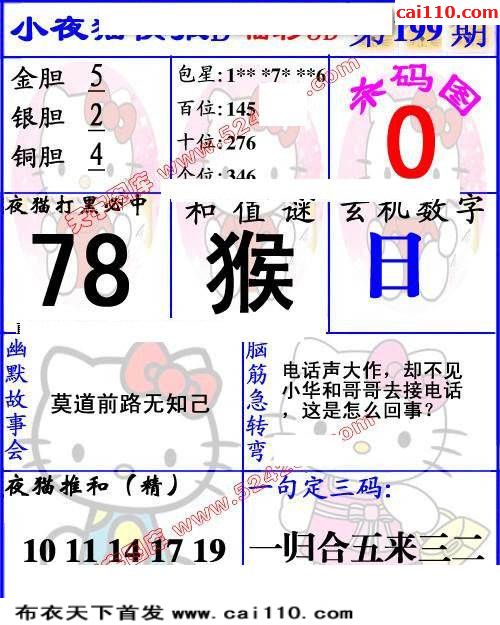 cai110.com
小夜猫 B 福彩3D 第199期
金胆 5
银胆 2
铜胆 4
包星:1** *7* **6
百位:145
十位:276
个位:346
来码图
0
夜猫打黑必中
78
和值谜
猴
玄机数字
日
幽默故事会
莫道前路无知己
脑筋急转弯
电话声大作，却不见
小华和哥哥去接电话
，这是怎么回事?
夜猫推和（精）
10 11 14 17 19
一句定三码:
一归合五来三二
布衣天下首发 www.cai110.com